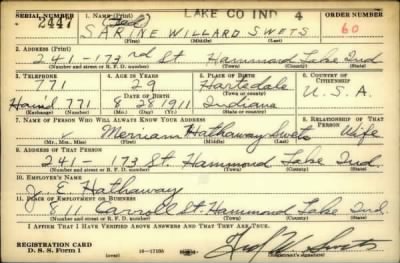 SERIAL NUMBER 1. NAME (Print) LAKE CO IND 4 ORDER NUMBER
2447 (Fred) SARINE WILLARD SWETS 60
(First) (Middle) (Last)
2. ADDRESS (Print)
241-173rd St. Hammond Lake Ind
(Number and street or R. F. D. number) (Town) (County) (State)
3. TELEPHONE 4. AGE IN YEARS 5. PLACE OF BIRTH 6. COUNTRY OF CITIZENSHIP
771 29 Hartsdale
DATE OF BIRTH (Town or county) U.S.A.
Hamd 771 8 28 1911 Indiana
(Exchange) (Number) (Mo.) (Day) (Yr.) (State or country)
7. NAME OF PERSON WHO WILL ALWAYS KNOW YOUR ADDRESS 8. RELATIONSHIP OF THAT PERSON
Merriam Hathaway Swets Wife
(Mr., Mrs., Miss) (First) (Middle) (Last)
9. ADDRESS OF THAT PERSON
241- 173 St. Hammond Lake Ind.
(Number and street or R. F. D. number) (Town) (County) (State)
10. EMPLOYER'S NAME
J. E. Hathaway
11. PLACE OF EMPLOYMENT OR BUSINESS
811 Carroll St. Hammond Lake Ind.
(Number and street or R. F. D. number) (Town) (County) (State)
I AFFIRM THAT I HAVE VERIFIED ABOVE ANSWERS AND THAT THEY ARE TRUE.
REGISTRATION CARD
D. S. S. Form 1 16-17105 Fred W Swets
(Registrant's signature)